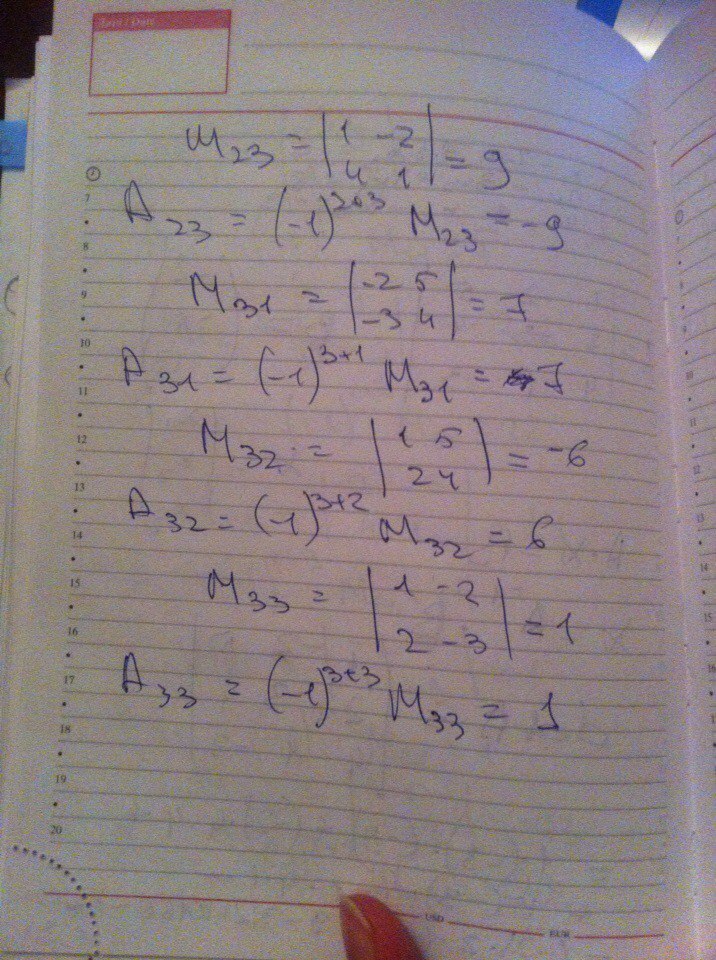 Дата / Date
M₂₃ = |1 -2| = 9
|4 1|
A₂₃ = (-1)²⁺³ M₂₃ = -9
M₃₁ = |-2 5| = 7
|-3 4|
A₃₁ = (-1)³⁺¹ M₃₁ = 7
M₃₂ = |1 5| = -6
|2 4|
A₃₂ = (-1)³⁺² M₃₂ = 6
M₃₃ = |1 -2| = 1
|2 -3|
A₃₃ = (-1)³⁺³ M₃₃ = 1
7
8
9
10
11
12
13
14
15
16
17
18
19
20
USD
EUR